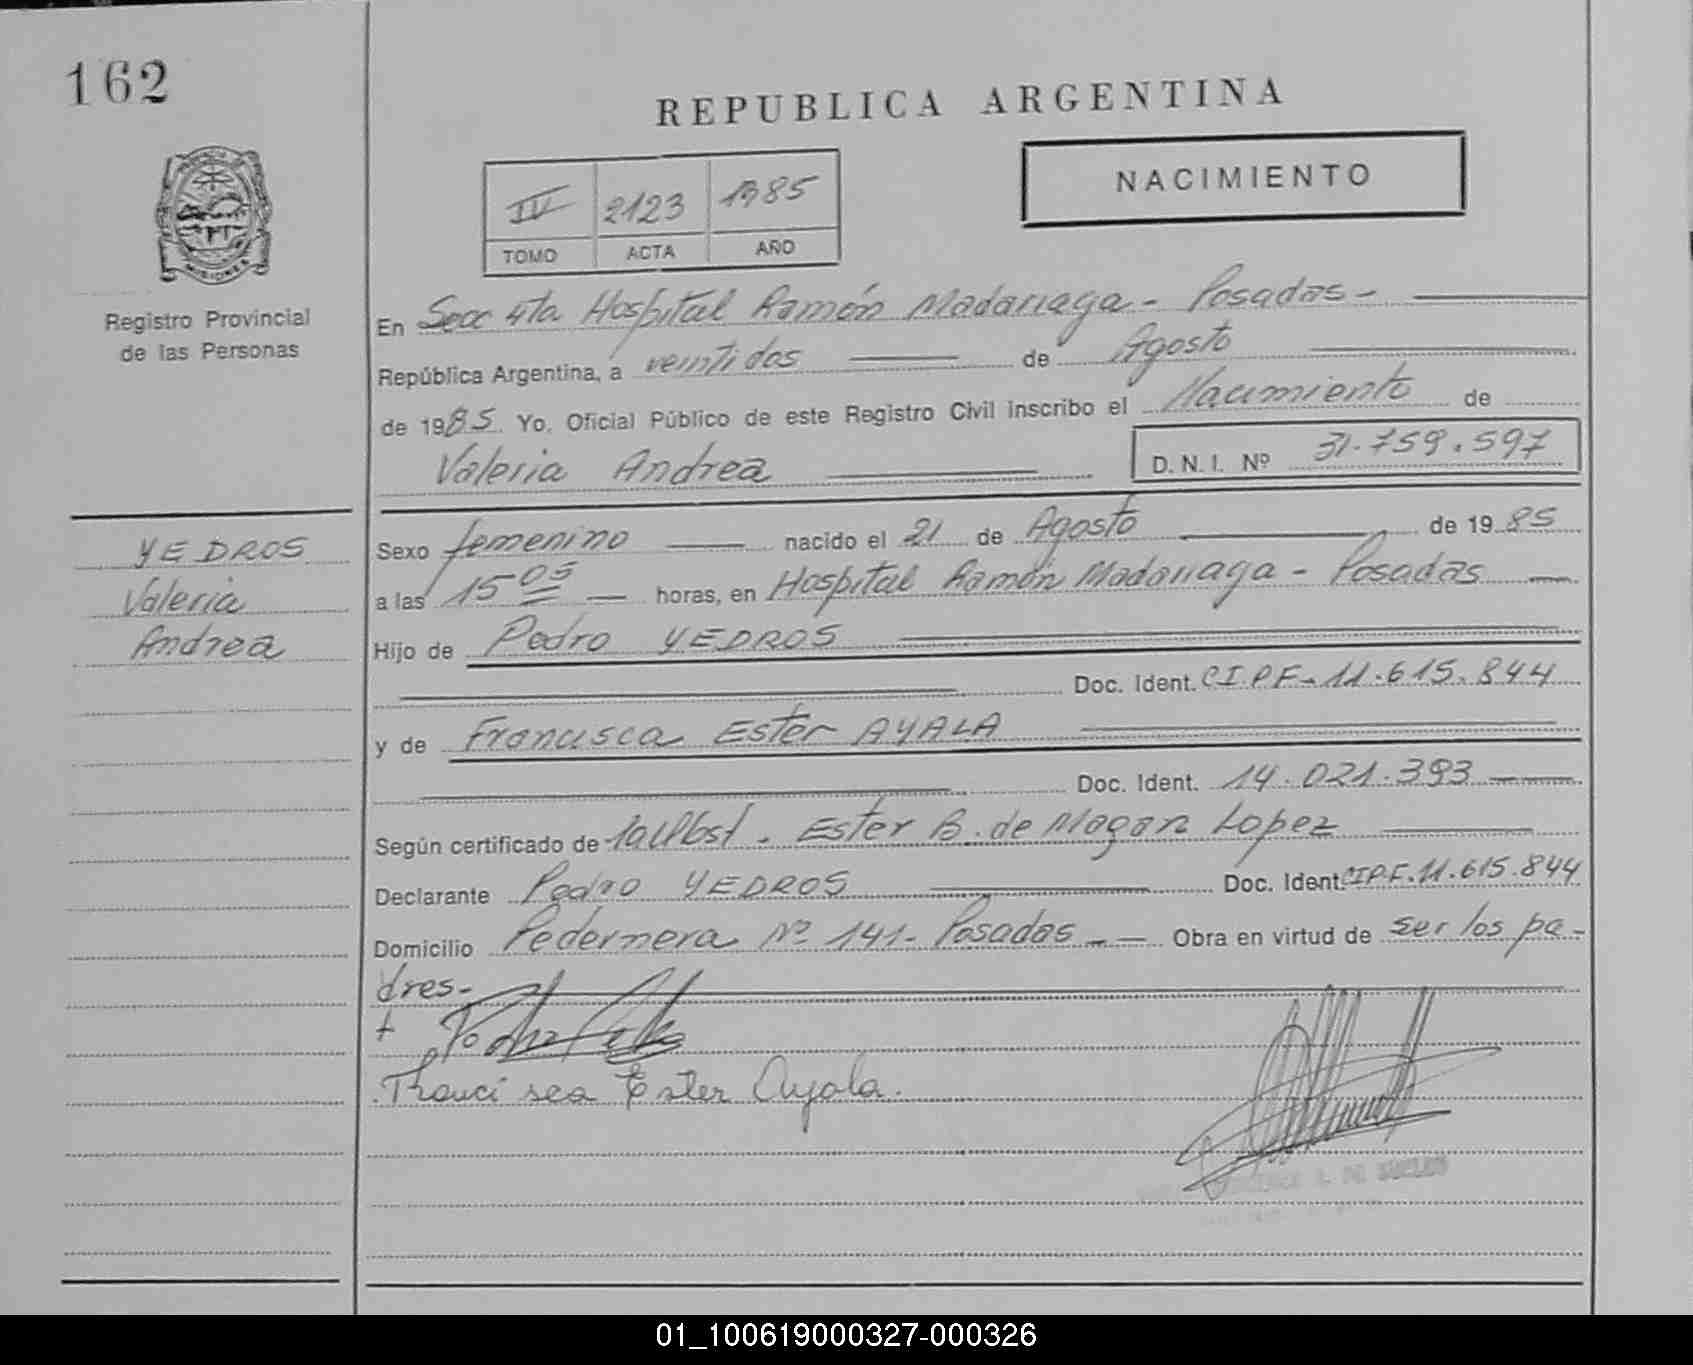 162
REPUBLICA ARGENTINA
NACIMIENTO
IV 2123 1985
TOMO ACTA AÑO
MISIONES
Registro Provincial
de las Personas
En Secc 4ta Hospital Ramón Madariaga - Posadas -
República Argentina, a veintidos de Agosto
de 1985. Yo, Oficial Público de este Registro Civil inscribo el Nacimiento de
Valeria Andrea D. N. I. Nº 31.759.597
YEDROS
Valeria
Andrea
Sexo femenino nacido el 21 de Agosto de 1985
a las 15 05 horas, en Hospital Ramón Madariaga - Posadas
Hijo de Pedro YEDROS
Doc. Ident. CI.PF-11.615.844
y de Francisca Ester AYALA
Doc. Ident. 14.021.393
Según certificado de Ester B. de Mogan Lopez
Declarante Pedro YEDROS Doc. Ident. CIPF.11.615.844
Domicilio Pedernera Nº 141- Posadas - Obra en virtud de ser los pa-
dres-
Francisca Ester Ayala.
01_100619000327-000326